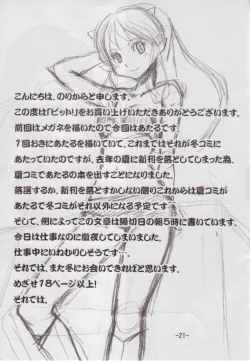 こんにちは、のりからと申します。
この度は「ビッチ!」をお買い上げいただきありがとうございます。
前回はメガネを描いたので今回はあたるです。
1回おきにあたるを描いていて、これまではそれが冬コミに
あたっていたのですが、去年の夏に新刊を落としてしまった為、
夏コミであたるの本を出すことになりました。
落選するか、新刊を落とすかしない限りこれからは夏コミが
あたるで冬コミがそれ以外になる予定です
そして、例によってこの文章は締切日の朝5時に書いています。
今日は仕事なのに徹夜してしまいました。
仕事中にいねむりしそうです・・・。
それでは、また冬にお会いできればと思います。
めざせ18ページ以上!
それでは。
-21-